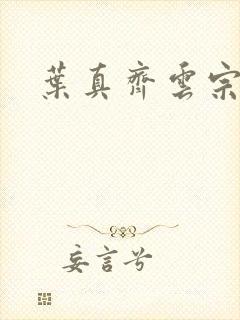 葉真齊雲宗
妄言兮